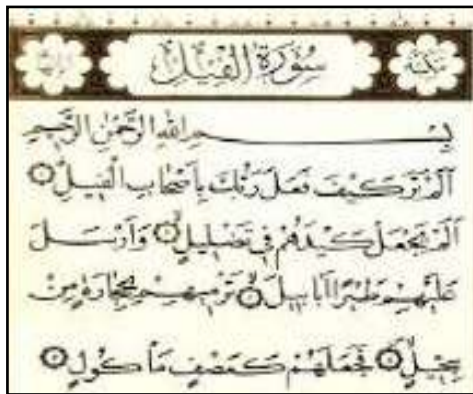 مكية سُورَةُ الْفِيلِ
بِسْمِ اللهِ الرَّحْمٰنِ الرَّحِيمِ
اَلَمْ تَرَ كَيْفَ فَعَلَ رَبُّكَ بِاَصْحَابِ الْفِيلِ
اَلَمْ يَجْعَلْ كَيْدَهُمْ فِي تَضْلِيلٍ وَاَرْسَلَ
عَلَيْهِمْ طَيْرًا اَبَابِيلَ تَرْمِيهِمْ بِحِجَارَةٍ مِنْ
سِجِّيلٍ فَجَعَلَهُمْ كَعَصْفٍ مَأْكُولٍ